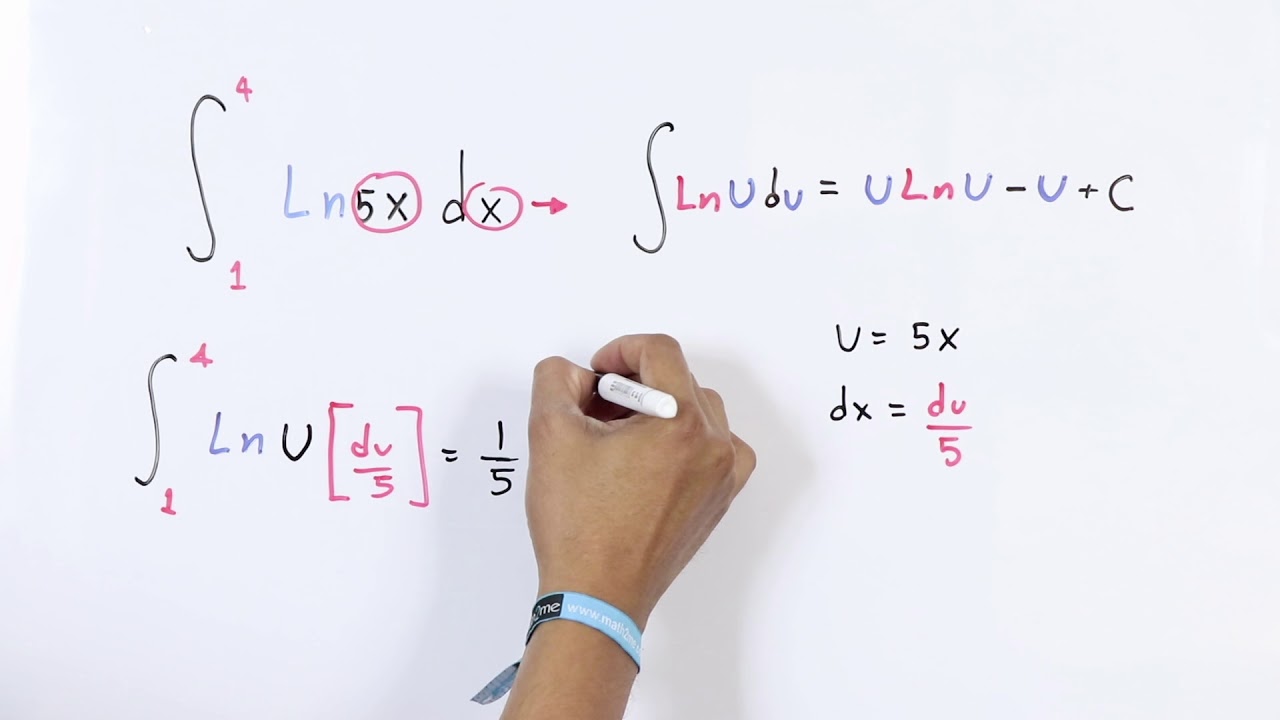 ∫₁⁴ Ln 5x dx → ∫ Ln U du = U Ln U - U + C
U = 5x
dx = du/5
∫₁⁴ Ln U [du/5] = 1/5
me www.math2me